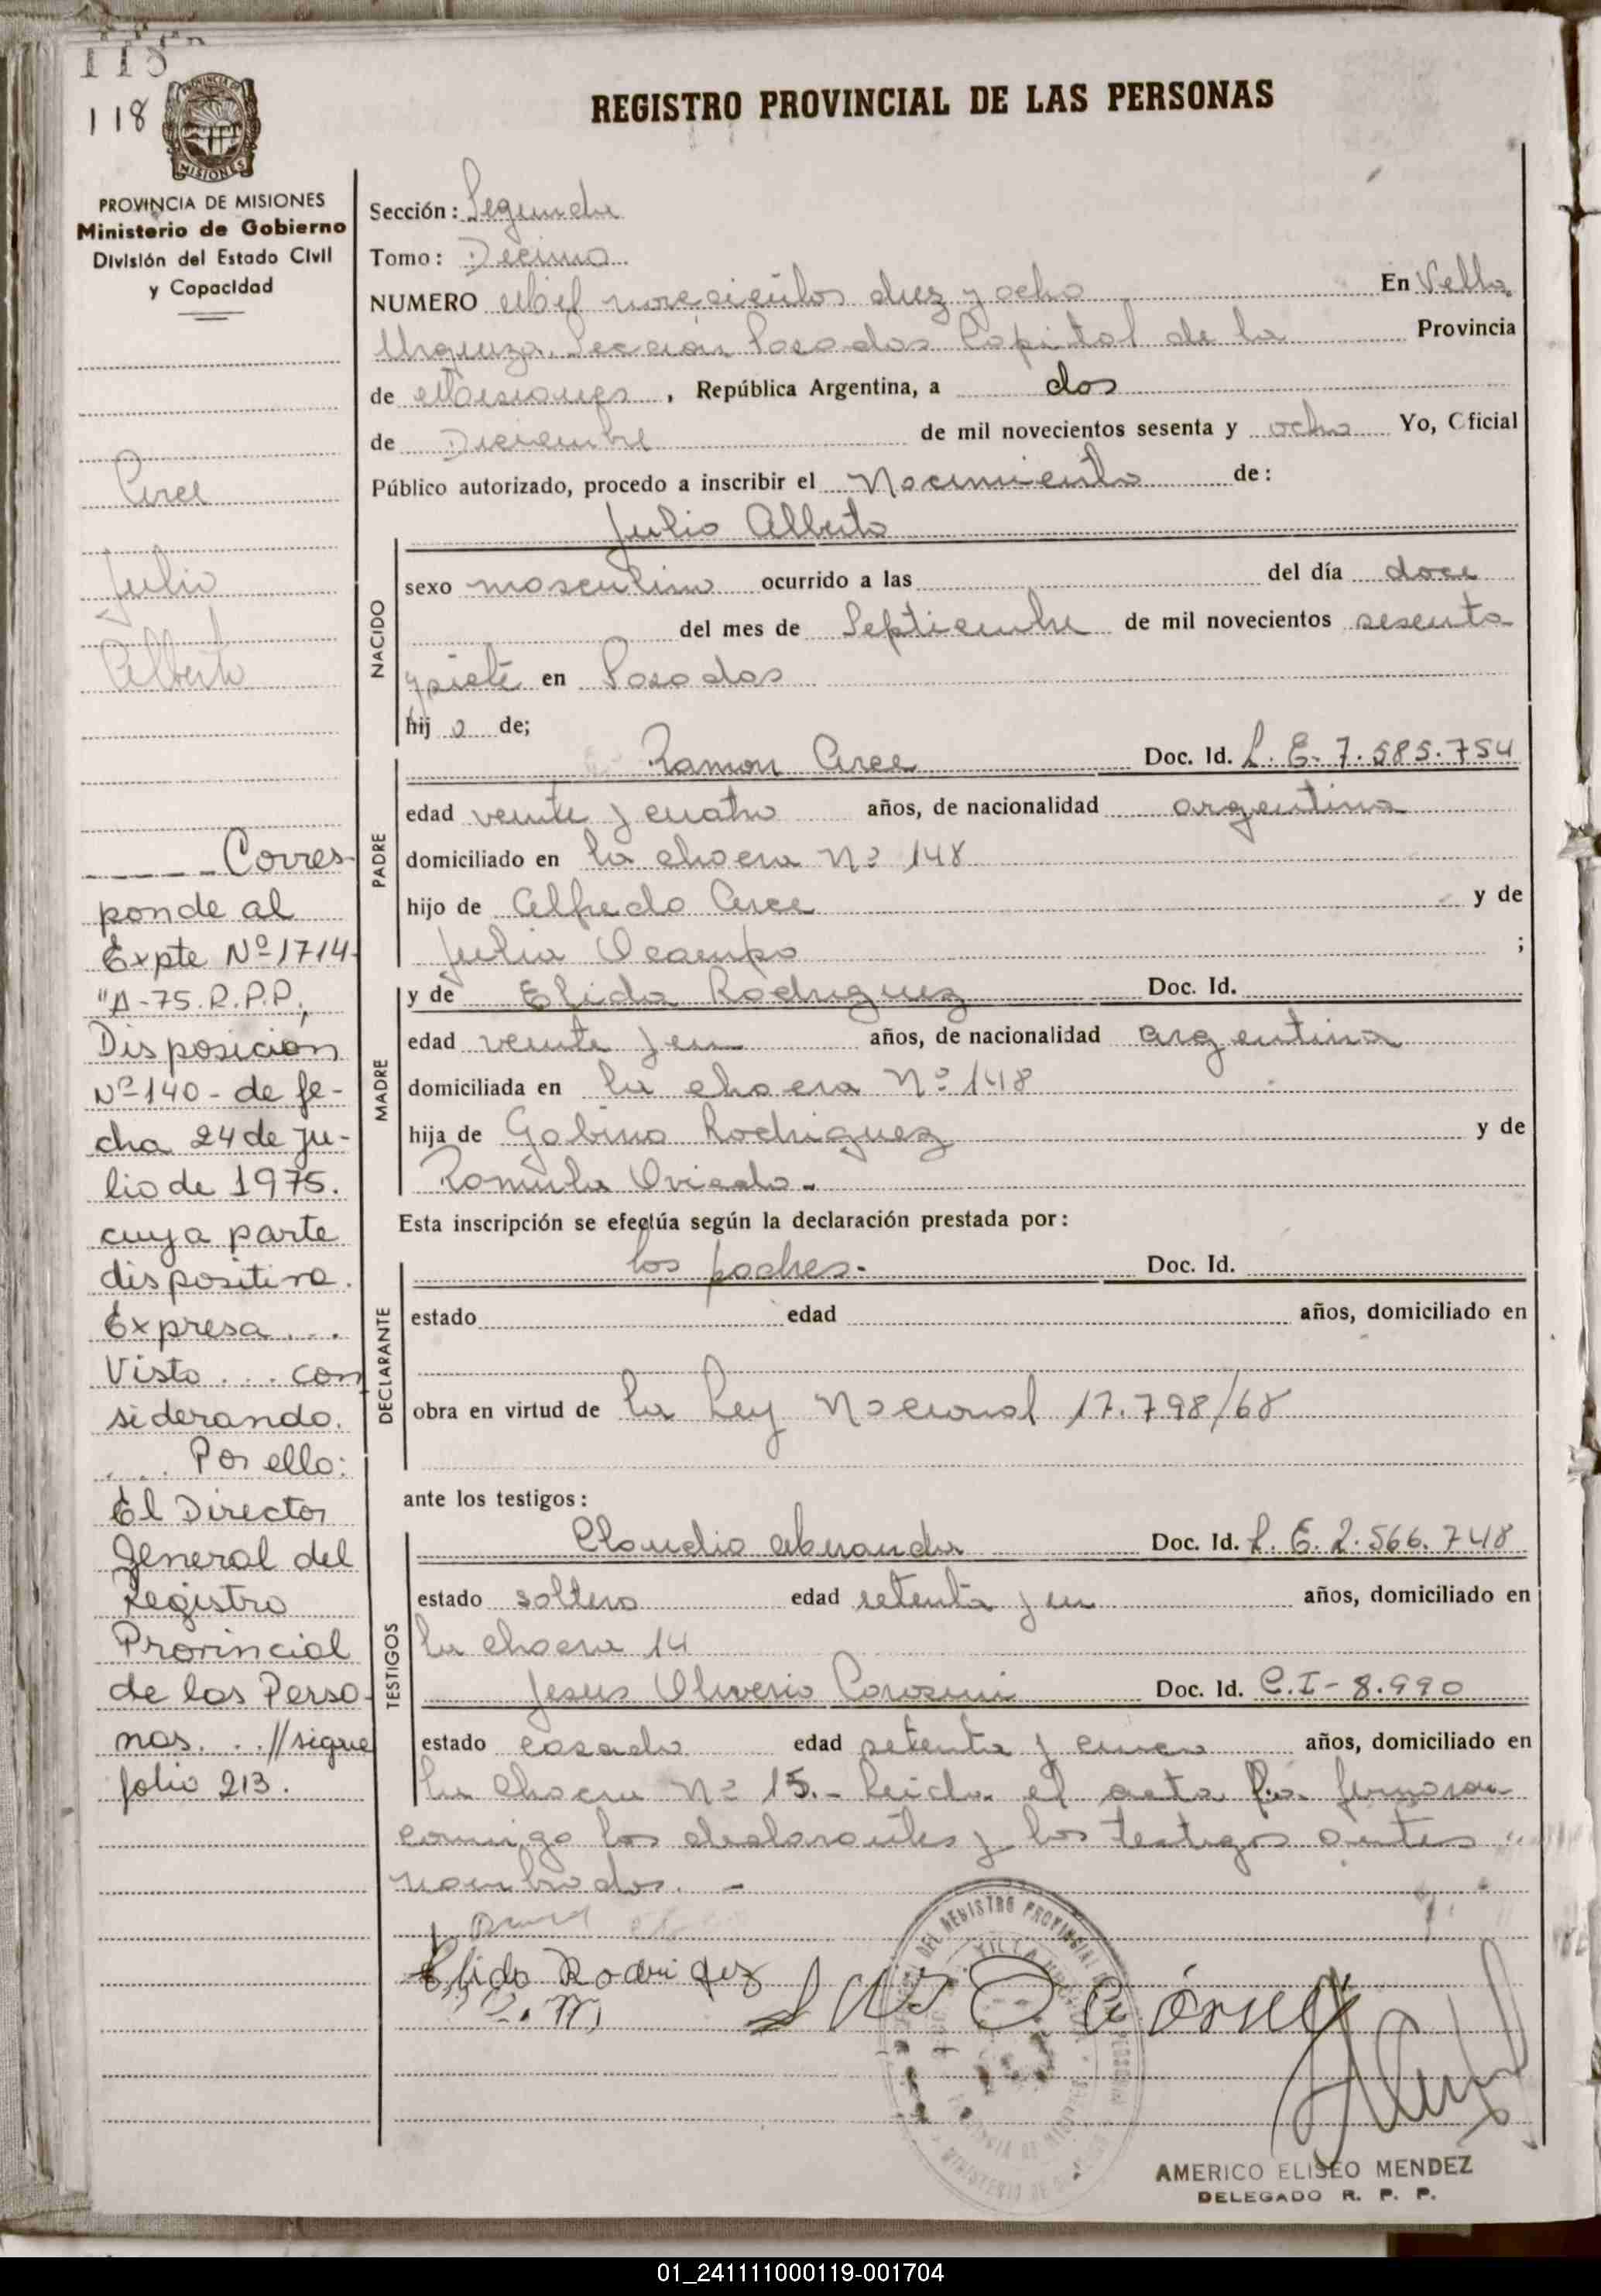 118
118
PROVINCIA DE MISIONES
Ministerio de Gobierno
División del Estado Civil
y Capacidad
REGISTRO PROVINCIAL DE LAS PERSONAS
Sección: Segunda
Tomo: Decimo
NUMERO Mil novecientos diez y ocho En Villa
Urquiza, Sección Posadas Capital de la Provincia
de Misiones, República Argentina, a dos
de Diciembre de mil novecientos sesenta y ocho Yo, Oficial
Público autorizado, procedo a inscribir el Nacimiento de:
Julio Alberto
NACIDO
sexo masculino ocurrido a las del día doce
del mes de Septiembre de mil novecientos sesenta
y siete en Posadas
hij o de;
PADRE
Ramon Arce Doc. Id. L. E. 7.585.754
edad veinte y cuatro años, de nacionalidad argentino
domiciliado en la chacra Nº 148
hijo de Alfredo Arce y de
Julia Ocampo ;
MADRE
y de Elida Rodriguez Doc. Id.
edad veinte y un años, de nacionalidad argentina
domiciliada en la chacra Nº 148
hija de Gabino Rodriguez y de
Romula Oviedo.-
Esta inscripción se efectúa según la declaración prestada por:
DECLARANTE
los padres.- Doc. Id.
estado edad años, domiciliado en
obra en virtud de la Ley Nacional 17.798/68
ante los testigos:
TESTIGOS
Claudio Miranda Doc. Id. L. E. 2.566.748
estado soltero edad setenta y un años, domiciliado en
la chacra 14
Jesus Oliverio Doc. Id. C.I-8.990
estado casado edad setenta y cinco años, domiciliado en
la chacra Nº 15.- Leida el acta la firmaron
conmigo los declarantes y los testigos antes
nombrados. -
Arce
Julio
Alberto
Corres-
ponde al
Expte Nº 1714-
"A-75. R.P.P,
Disposición
Nº 140- de fe-
cha 24 de Ju-
lio de 1975.
cuya parte
dispositiva.
Expresa...
Visto... con
siderando.
... Por ello:
El Director
General del
Registro
Provincial
de las Perso-
nas... //sigue
folio 213.
Elida Rodriguez
AMERICO ELISEO MENDEZ
DELEGADO R. P. P.
01_241111000119-001704